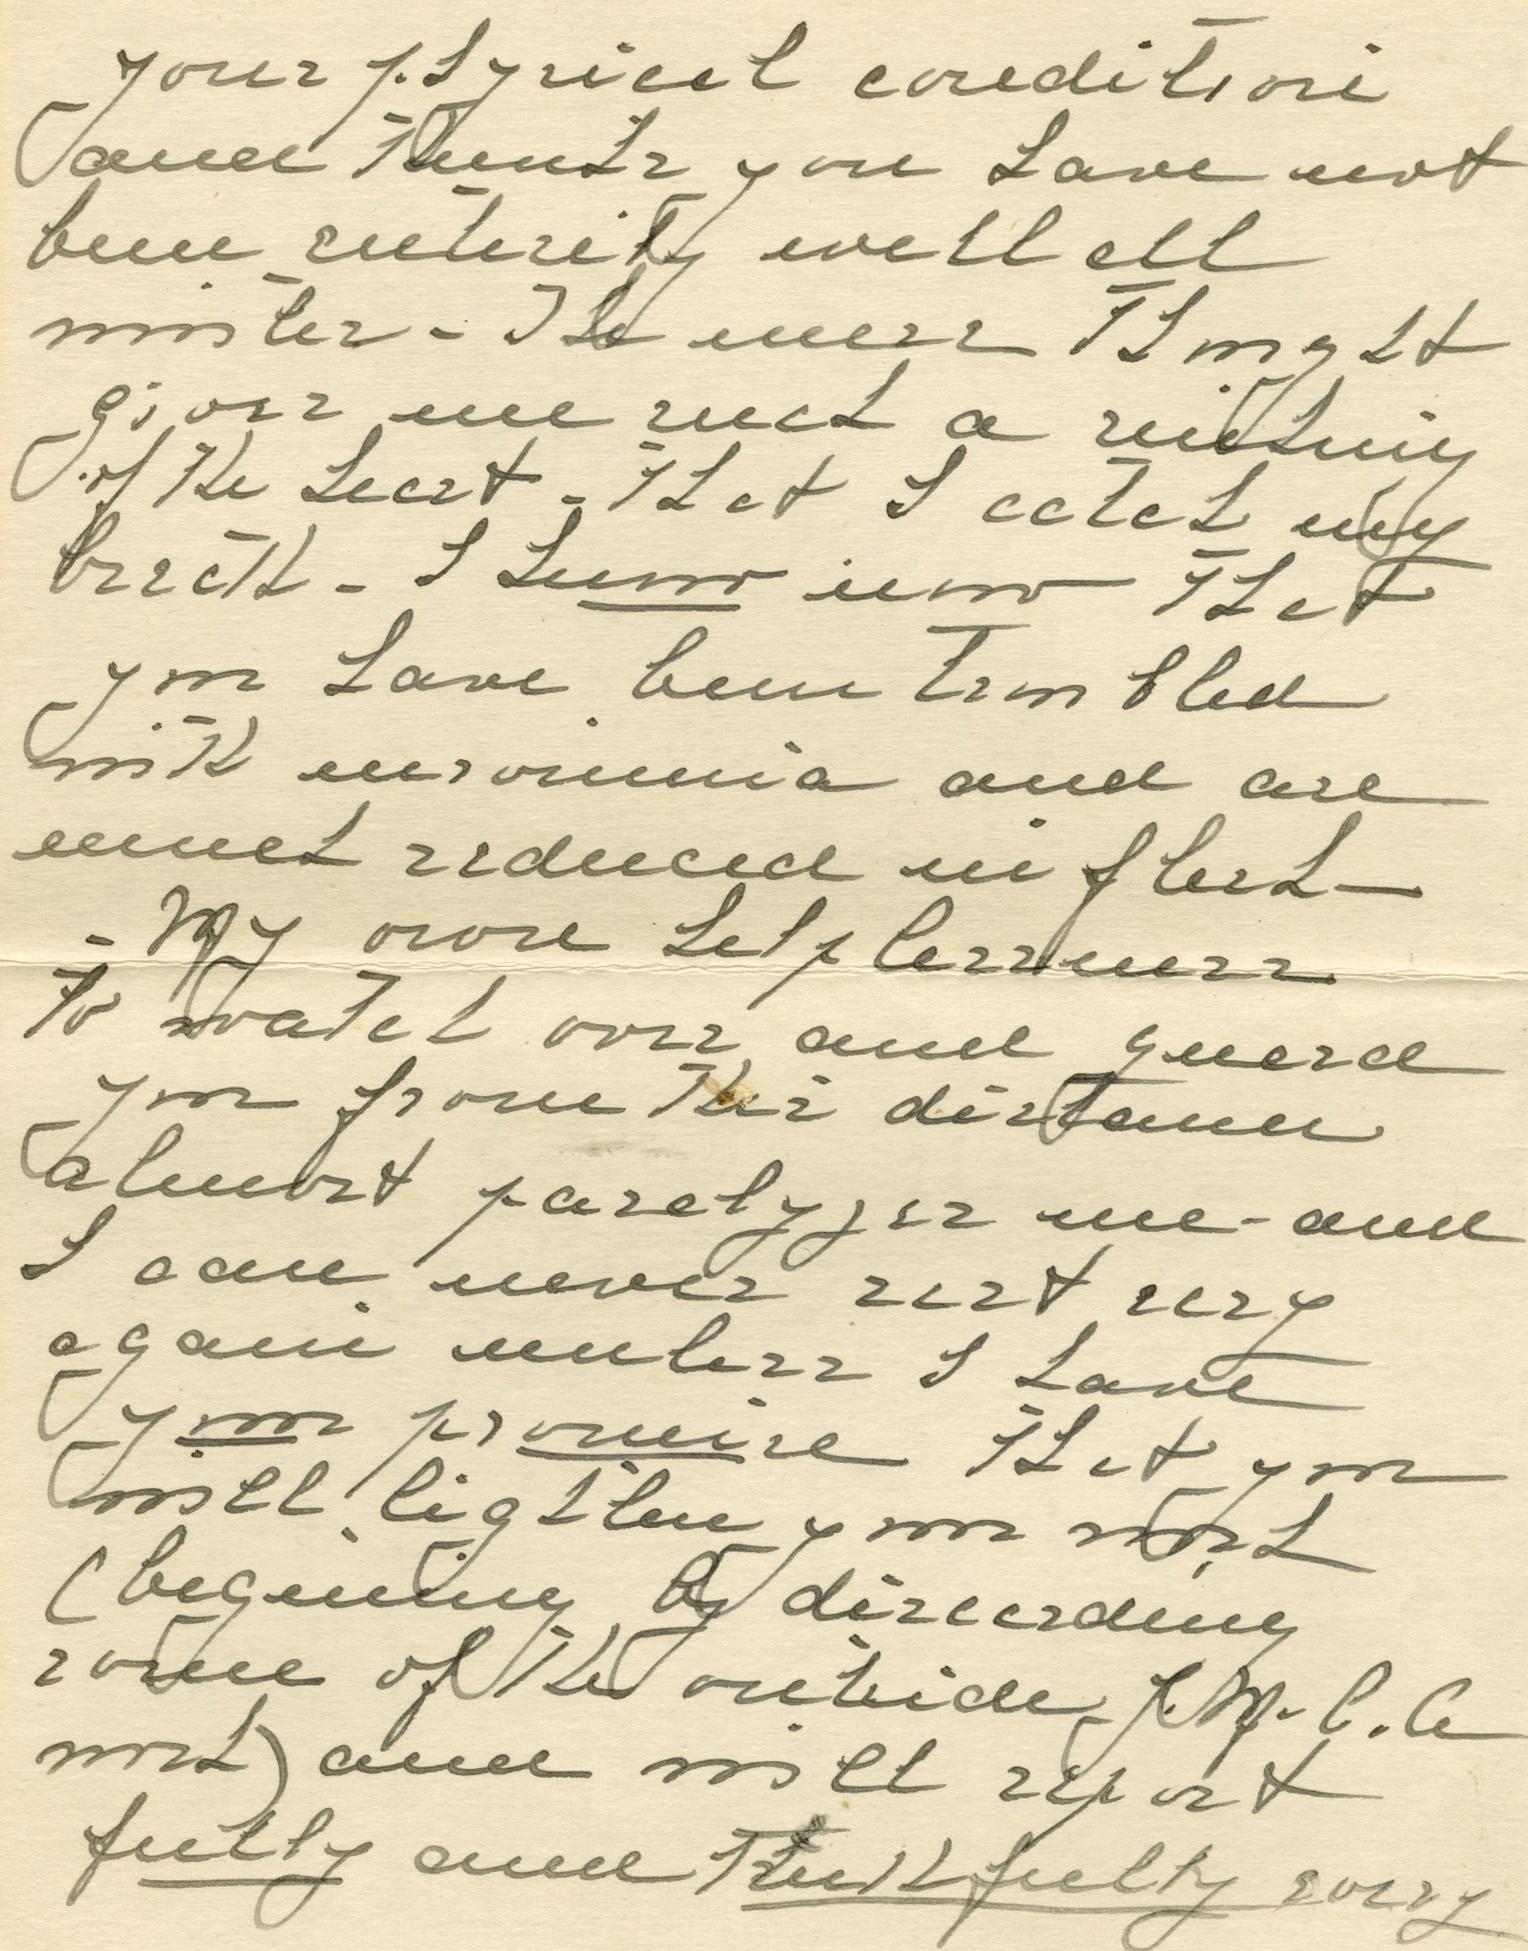 your physical condition
and think you have not
been entirely well all
winter - The mere thought
gives me such a sinking
of the heart - that I catch my
breath - I know now that
you have been troubled
with insomnia and are
much reduced in flesh -
- My own helplessness
to watch over and guard
you from this distance
almost paralyzes me - and
I can never rest easy
again unless I have
your promise that you
will lighten your work
(begining by discarding
some of the outside Y.M.C.A
work) and will report
fully and truthfully every